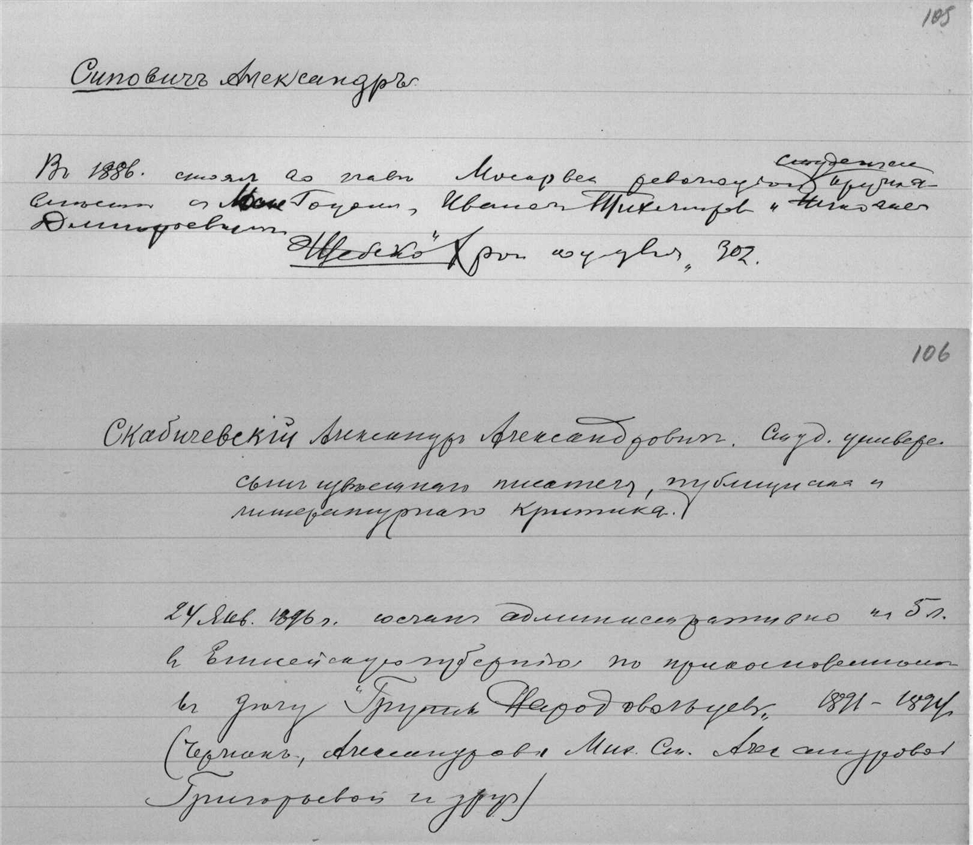 105
Сиповичъ Александръ.
студенческ
Въ 1886. стоял во главѣ Москов. революціон. кружка
вмѣстѣ съ Гоцомъ, Иваномъ Тихомиров и Николаемъ
Дмитріевичемъ
302.
106
Скабичевскій Александръ Александровичъ. Студ. универс.
сынъ извѣстнаго писателя, публициста и
литературнаго критика.
24 Янв. 1896 г. сосланъ административно на 5 л.
въ Енисейскую губернію по прикосновенности
къ дѣлу "Группы Народовольцевъ" 1891 - 1894 г.
Александрова Мих. Ст. Александровой
Григорьевой и друг)